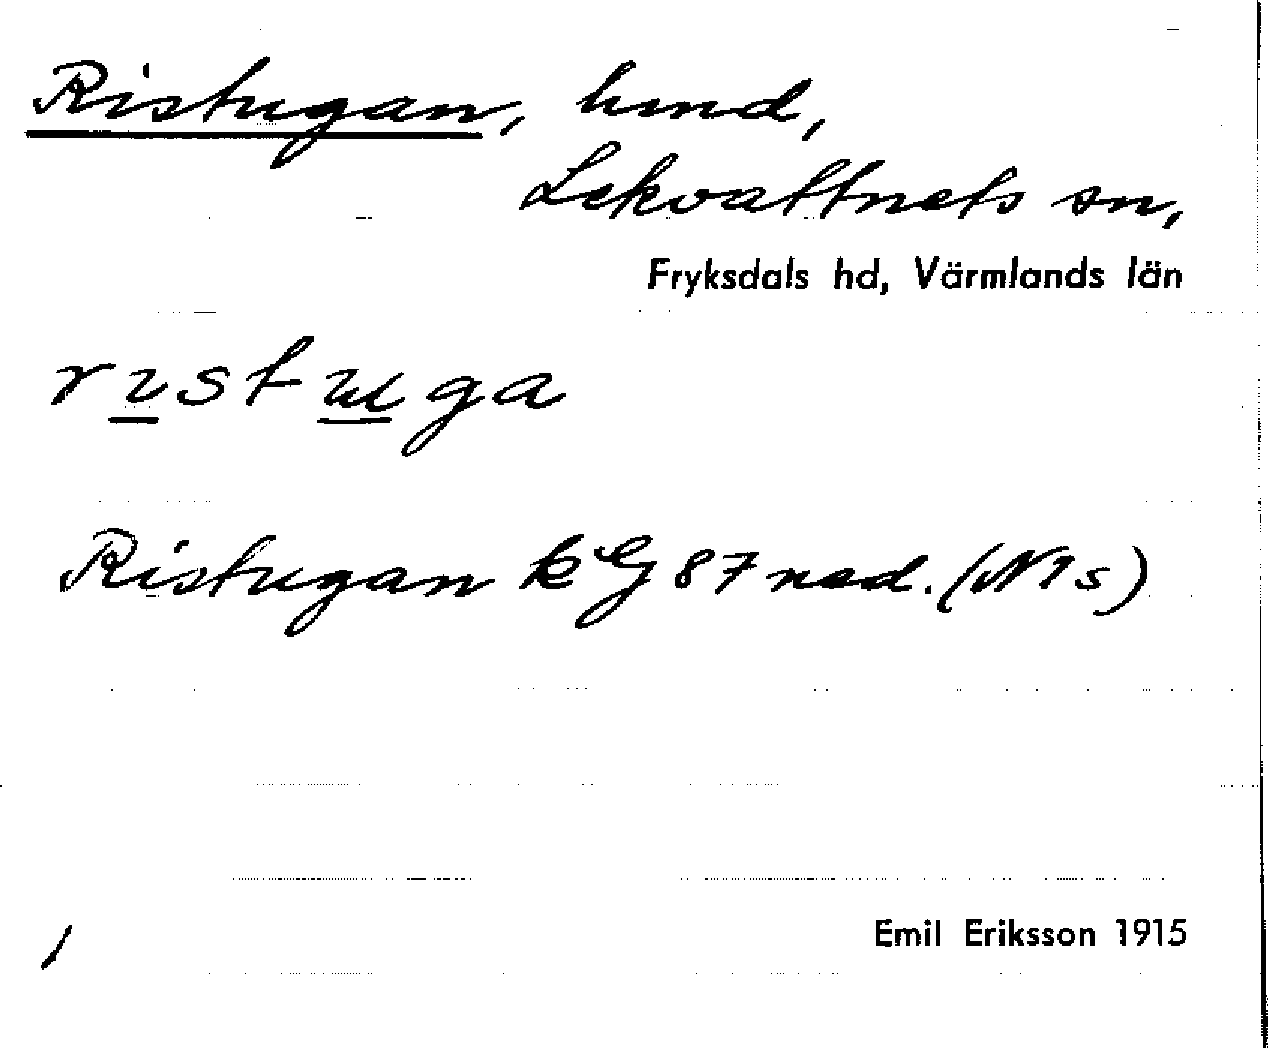 Ristugan, hmd,
Lekvattnets sn,
Fryksdals hd, Värmlands län
ristuga
Ristugan k G 87 ned. (N1s)
Emil Eriksson 1915
1